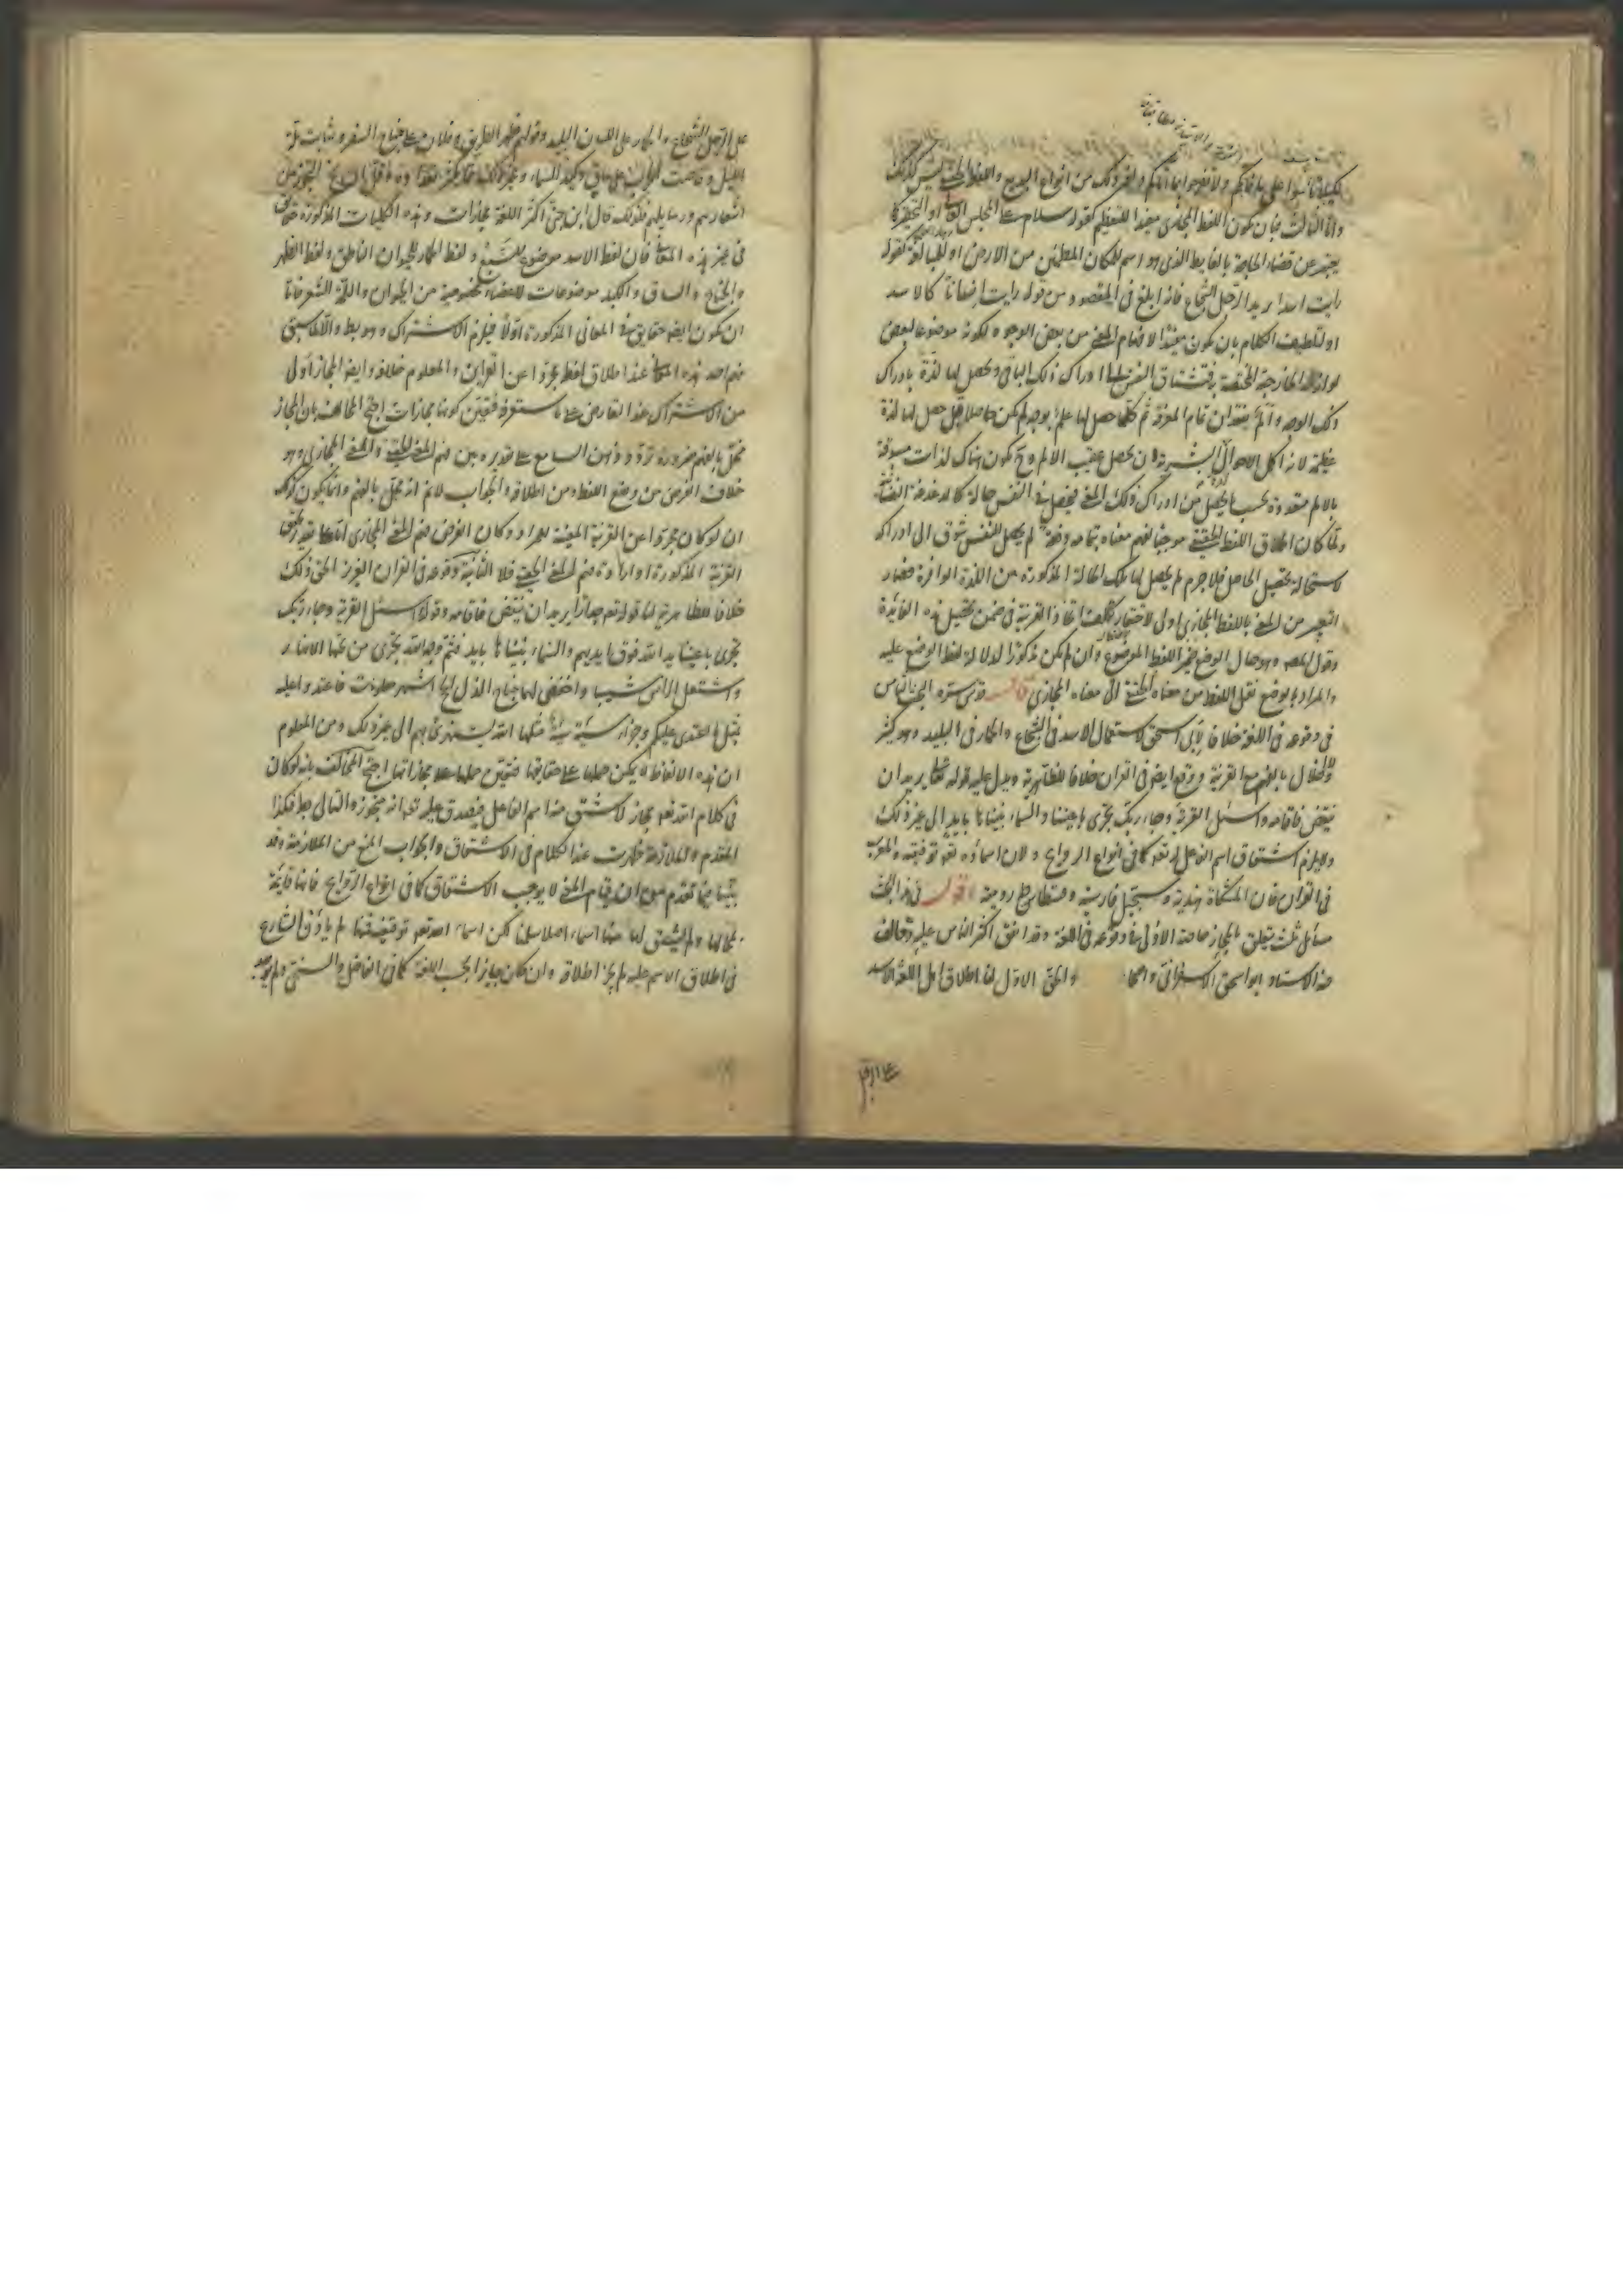 لكيلا تأسوا على ما فاتكم ولا تفرحوا بما آتاكم وغير ذلك من انواع البديع واللفظ الحقيقي ليس كذلك
واما الثالث فبان يكون اللفظ المجازي مفيدا للتعظيم كقوله سلام على المجلس العالي او التحقير كما
يعبر عن قضاء الحاجة بالغايط الذي هو اسم للمكان المطمئن من الارض او للمبالغة كقوله
رايت اسدا يريد الرجل الشجاع فانه ابلغ في المقصود من قوله رايت انسانا كالاسد
او لتلطيف الكلام بان يكون مفيدا لافهام المعنى من بعض الوجوه لكونه موضوعا لبعض
لوازمه الخارجية المختصة به فتشتاق النفس الى ادراك ذلك الباقي وتحصل لها لذة بادراك
ذلك الوجه والم بفقدان تمام المعرفة ثم كلما حصل لها علم بوجه لم يكن حاصلا قبل حصل لها لذة
عظيمة لان اكمل الاحوال البشرية ان تحصل عقيب الالم وح تكون هناك لذات مسبوقة
بالالم متعددة بحسب ما يحصل من ادراك ذلك المعنى فيحصل في النفس حالة كالدغدغة النفسانية
ولما كان اطلاق اللفظ الحقيقي موجبا لفهم معناه بتمامه دفعة لم يحصل للنفس شوق الى ادراكه
لاستحالة تحصيل الحاصل فلا جرم لم يحصل لها تلك الحالة المذكورة من اللذة الوافرة فصار
التعبير عن المعنى باللفظ المجازي اولى لاحتقار كلفة اتخاذ القرينة في ضمن تحصيل هذه الفائدة
وقول المصه وهو حال الوضع يفتقر اللفظ الموضوع وان لم يكن مذكورا لدلالة لفظ الوضع عليه
والمراد بالوضع نقل اللفظ من معناه الحقيقي الى معناه المجازي قال قدس سره البحث السادس
في وقوعه في اللغة خلافا لابي اسحق لاستعمال الاسد في الشجاع والحمار في البليد وهو كثير
ولا اخلال بالفهم مع القرينة ووقع ايضا في القران خلافا للظاهرية ويدل عليه قوله تعالى يريد ان
ينقض فاقامه واسئل القرية وجاء ربك تجري باعيننا والسماء بنيناها بايد الى غير ذلك
ولا يلزم اشتقاق اسم الفاعل له تعالى كما في انواع الروايح ولان اسماؤه تعالى توقيفية والمعرب
في القران فان المشكاة هندية وسجيل فارسية وقسطاس رومية اقول في هذا البحث
مسائل ثلث يتعلق بالمجاز خاصة الاولى في وقوعه في اللغة وقد اتفق اكثر الناس عليه وخالف
فيه الاستاد ابو اسحق الاسفرائني واصحابه والحق الاول لنا اطلاق اهل اللغة الاسد
على الرجل الشجاع والحمار على الانسان البليد وقولهم ظهر الطريق وفلان على جناح السفر وشابت لمة
الليل وقامت الحرب على ساق وكبد السماء وغير ذلك مما يكثر تعداده
اشعارهم ورسايلهم فلذلك قال ابن جني اكثر اللغة مجازات وهذه الكلمات المذكورة حقائق
في غير هذه المعاني فان لفظ الاسد موضوع للسبع ولفظ الحمار للحيوان الناهق ولفظ الظهر
والجناح والساق والكبد موضوعات للاعضاء المخصوصة من الحيوان واللمة للشعر فاما
ان تكون ايضا حقايق في المعاني المذكورة اولا فيلزم الاشتراك وهو بط والا لما سبق
فهم احد هذه المعاني عند اطلاق اللفظ مجردا عن القراين والمعلوم خلافه وايضا المجاز اولى
من الاشتراك عند التعارض على ما ستعرفه فتعين كونها مجازات احتج المخالف بان المجاز
مخل بالفهم ضرورة تردد ذهن السامع على تقديره بين فهم المعنى الحقيقي والمعنى المجازي وهو
خلاف الغرض من وضع اللفظ ومن اطلاقه والجواب لانم انه مخل بالفهم وانما يكون كذلك
ان لو كان مجردا عن القرينة المعينة للمراد وكان الغرض فهم المعنى المجازي اما على تقدير تحقق
القرينة المذكورة او ارادة فهم المعنى الحقيقي فلا الثانية وقوعه في القران العزيز الحق ذلك
خلافا للظاهرية لنا قوله تعالى جدارا يريد ان ينقض فاقامه وقوله واسئل القرية وجاء ربك
تجري باعيننا يد الله فوق ايديهم والسماء بنيناها بايد فثم وجه الله تجري من تحتها الانهار
واشتعل الراس شيبا واخفض لهما جناح الذل الحج اشهر معلومات فاعتدوا عليه
بمثل ما اعتدى عليكم وجزاء سيئة سيئة مثلها الله يستهزئ بهم الى غير ذلك ومن المعلوم
ان هذه الالفاظ لا يمكن حملها على حقايقها فتعين حملها على مجازاتها احتج المخالف بانه لو كان
في كلام الله تعالى مجاز لاشتق منه اسم الفاعل فيصدق عليه تعالى انه متجوز والتالي بط فكذا
المقدم والملازمة ظهرت عند الكلام في الاشتقاق والجواب المنع من الملازمة وقد
بينا فيما تقدم من ان قيام المعنى لا يوجب الاشتقاق كما في انواع الروايح فانها قايمة
بمحالها ولم يشتق لها منها اسماء اصلا سلمنا لكن اسماء الله تعالى توقيفية فما لم ياذن الشارع
في اطلاق الاسم عليه لم يجز اطلاقه وان كان جايزا بحسب اللغة كما في الفاضل والسخي ولم يوجد
على الرجل